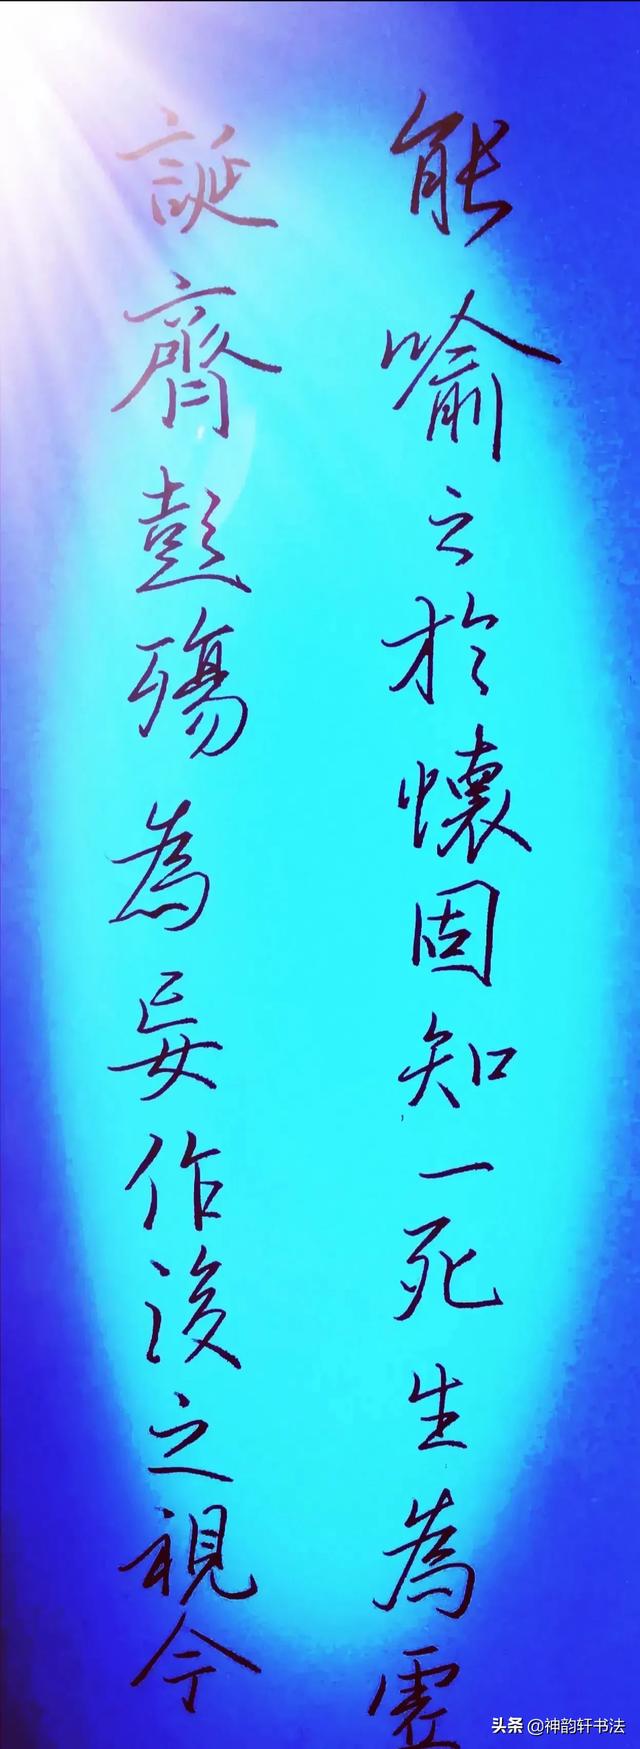 能喻之於懷固知一死生為虛
誕齊彭殤為妄作後之視今
头条 @神韵轩书法